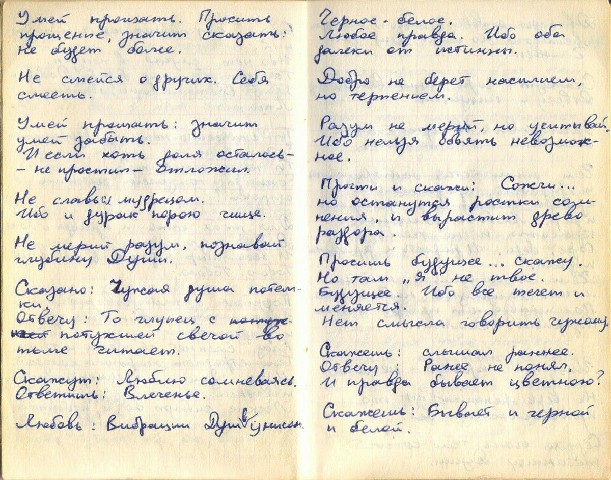 Умей прощать. Просить
прощение, значит сказать:
не будет более.
Не смейся о других. Себя
смеешь.
Умей прощать: значит
умей забыть.
И если хоть доля осталось –
– не простил – отложил.
Не славься мудрецом.
Ибо и дурак порою чище.
Не мерий разум, познавай
глубину Души.
Сказано: Чужая душа потем-
ки.
Отвечу: То глупец с
потухшей свечой во
тьме читает.
Скажут: Люблю сомневаясь.
Ответишь: Влеченье.
Любовь: Вибрации Душ в унисон.
Черное-белое.
Любое правда. Ибо оба
далеки от истинны.
Добро не берет насилием,
но терпением.
Разум не мерий, но учитывай.
Ибо нельзя объять невозмож-
ное.
Прости и скажи: Сожги...
но останутся ростки сом-
нения, и вырастит древо
раздора.
Просишь будущее... скажу.
Но там „Я не твое.
Будущее. Ибо все течет и
меняется.
Нет смысла говорить чужому.
Скажешь: слышал раннее.
Отвечу Ранее не понял.
И правда бывает цветною?
Скажешь: Бывает и черной
и белой.